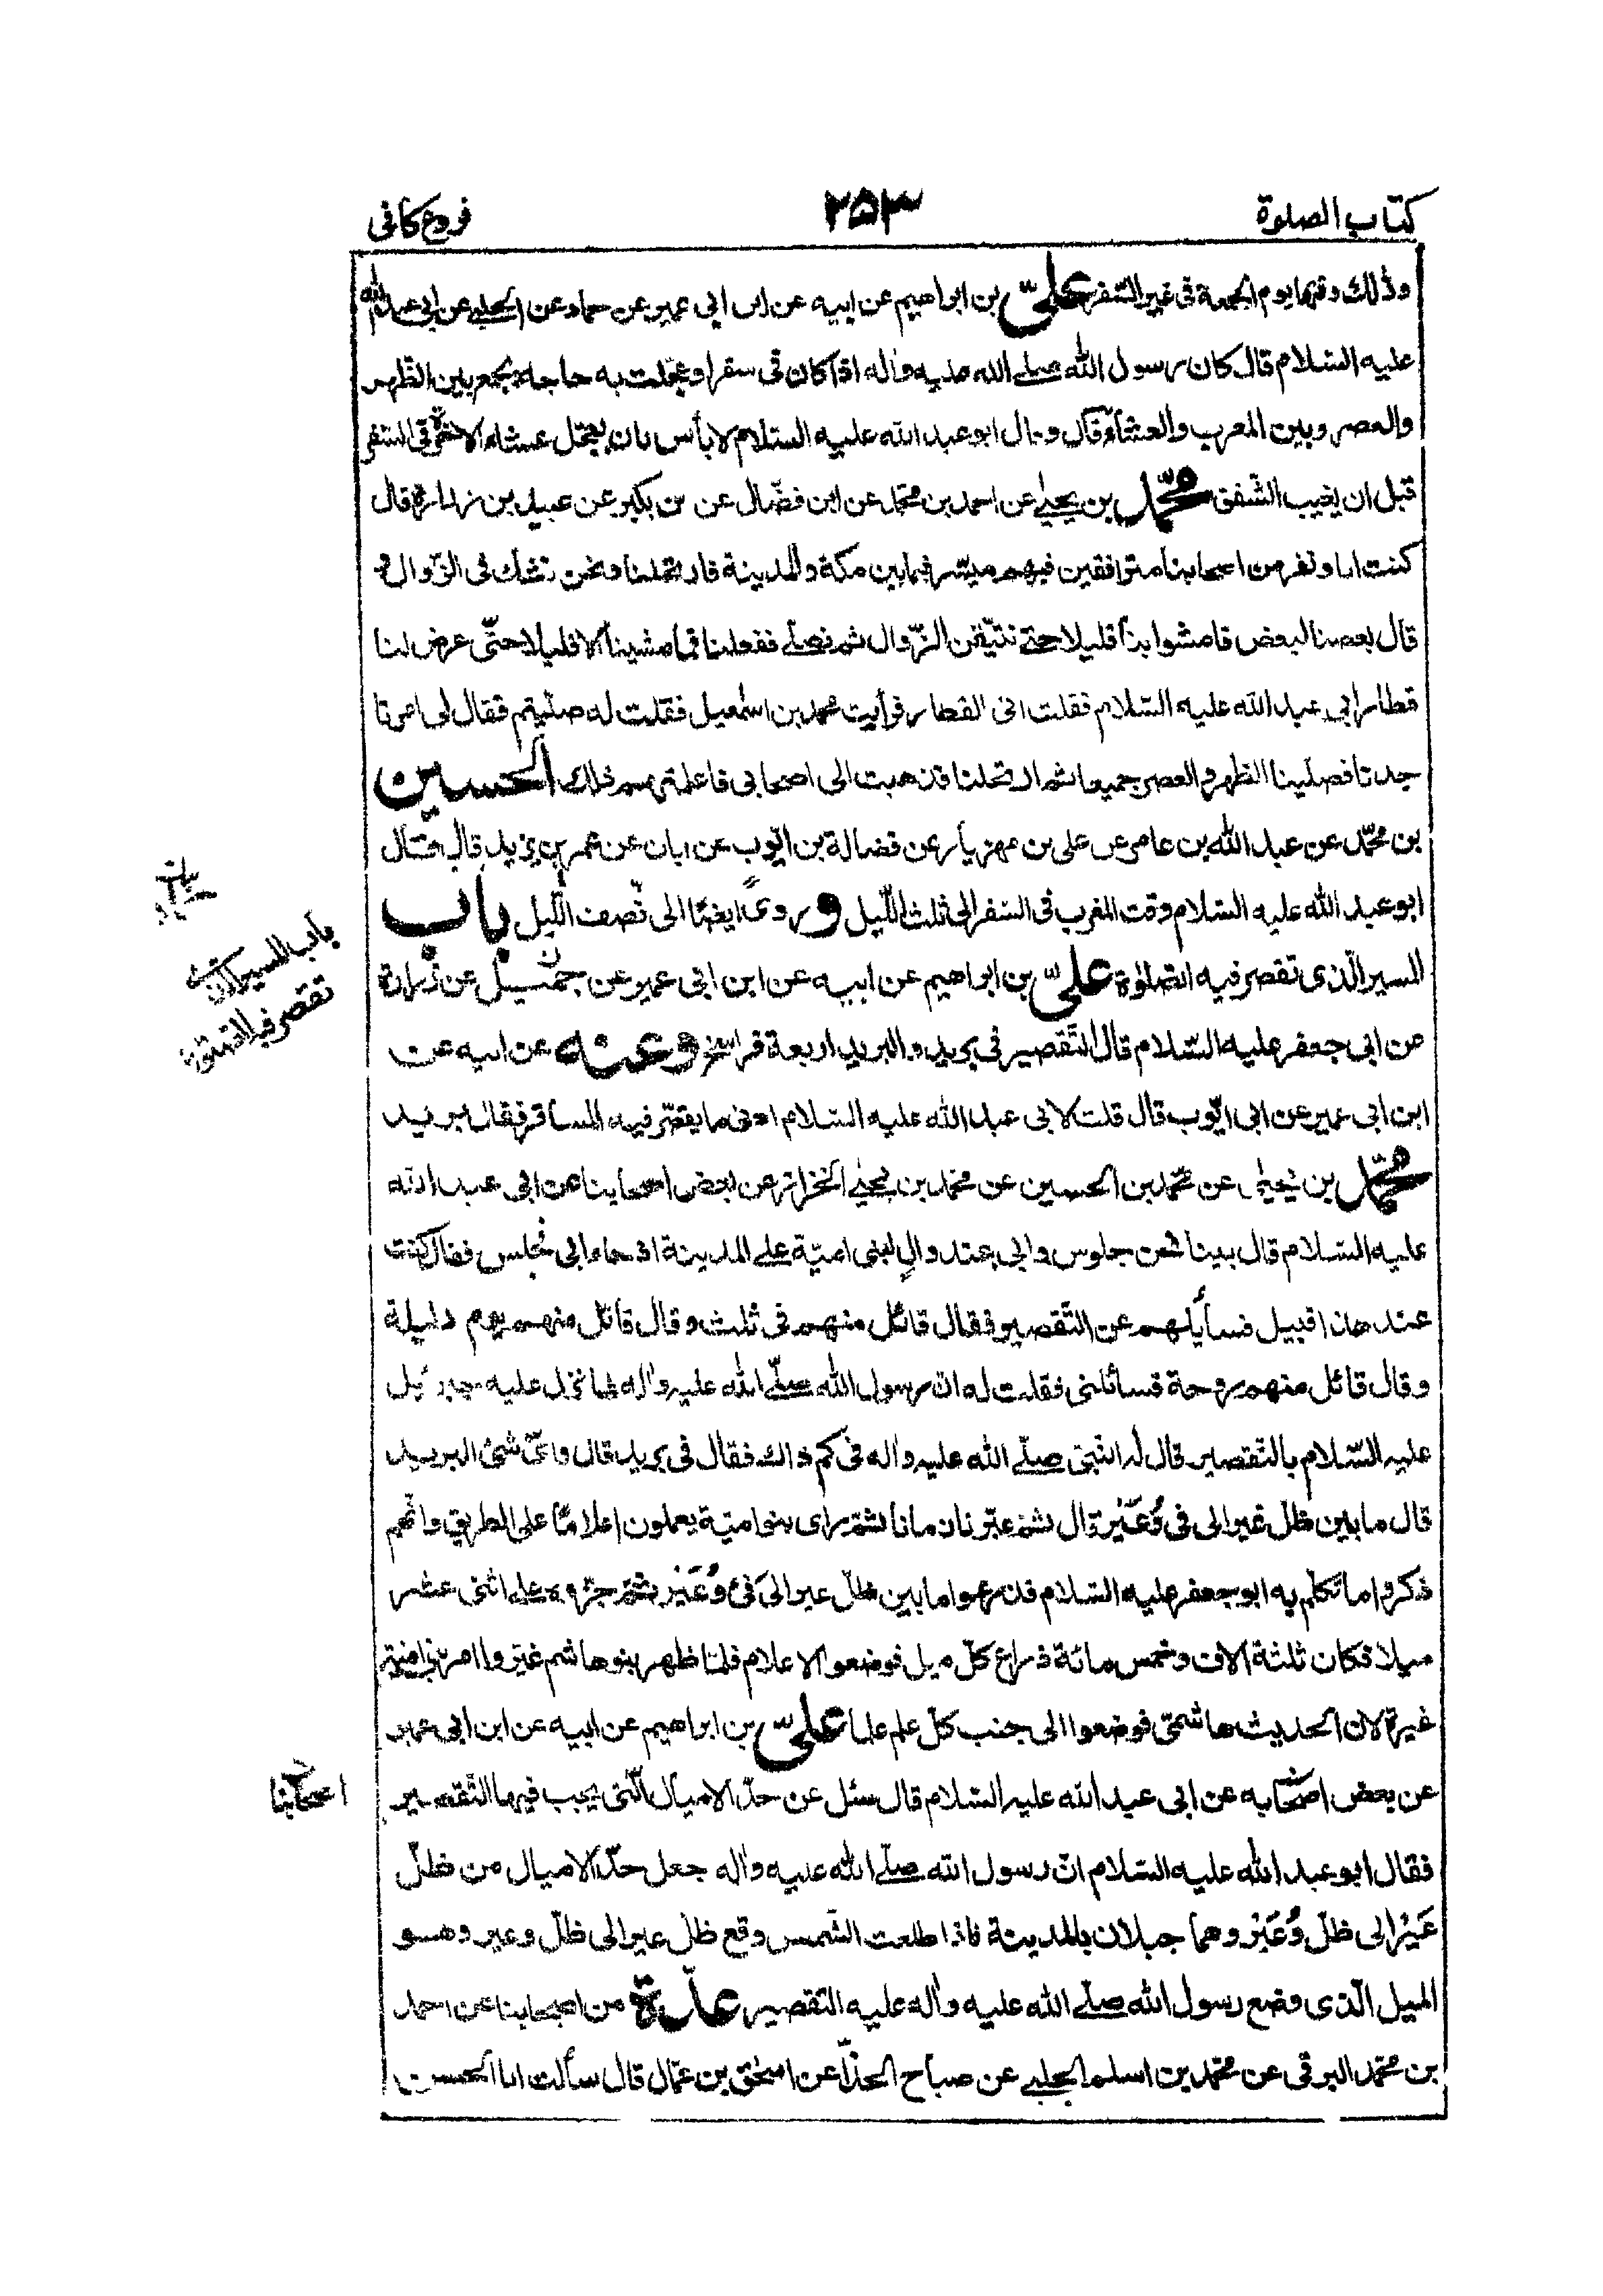 كتاب الصلوة
٢٥٣
فروع كافى
وذلك وقتها يوم الجمعة فى غير السّفر علىّ بن ابراهيم عن ابيه عن ابن ابي عمير عن حماد عن الحلبي عن ابي عبد الله
عليه السّلام قال كان رسول الله صلّے الله عليه واله اذا كان فى سفر او عجّلت به حاجة يجمع بين الظهر
والعصر وبين المغرب والعشاء قال وقال ابو عبد الله عليه السّلام لا بأس بان يعجّل عشاء الاخرة فى السّفر
قبل ان يغيب الشّفق محمّد بن يحيٰے عن احمد بن محمّد عن ابن فضّال عن بن بكير عن عبيد بن زرارة قال
كنت انا ونفر من اصحابنا مترافقين فيهم ميسّر فيما بين مكة والمدينة فارتحلنا ونحن نشك فى الزّوال
قال بعضنا لبعض فامشوا بنا قليلا حتے نتيّقن الزّوال ثم نصلّے ففعلنا فما مشينا الا قليلا حتّى عرض لنا
قطار ابي عبد الله عليه السّلام فقلت اتى القطار فرأيت محمد بن اسمٰعيل فقلت له صلّيتم فقال لى امرنا
جدنا فصلّينا الظهر والعصر جميعا ثم ارتحلنا فذهبت الى اصحابى فاعلمتهم ذلك الحسين
بن محمّد عن عبد الله بن عامر عن على بن مهزيار عن فضالة بن ايّوب عن ابان عن عمر بن يزيد قال قال
ابو عبد الله عليه السّلام وقت المغرب فى السّفر الى ثلث اللّيل وروى ايضًا الى نصف اللّيل باب
المسير الّذى تقصر فيه الصّلوٰة علىّ بن ابراهيم عن ابيه عن ابن ابى عمير عن جميل عن زرارة
عن ابى جعفر عليه السّلام قال التّقصير فى بريد والبريد اربعة فراسخ وعنه عن ابيه عن
ابن ابى عمير عن ابى ايّوب قال قلت لابى عبد الله عليه السّلام ادنى ما يقصّر فيه المسافر فقال بريد
محمّد بن يحيٰى عن محمّد بن الحسين عن محمّد بن يحيٰے الخزاز عن بعض اصحابنا عن ابى عبد الله
عليه السّلام قال بينا نحن جلوس وابى عند والٍ لبنى اميّة علے المدينة اذ جاء ابى فجلس فقال كنت
عند هذا قبيل فسأيلهم عن التّقصير فقال قائل منهم فى ثلث وقال قائل منهم يوم وليلة
وقال قائل منهم روحة فسألنى فقلت له انّ رسول الله صلّے الله عليه واله لما نزل عليه جبرئيل
عليه السّلام بالتّقصير قال له النّبى صلّے الله عليه واله فى كم ذاك فقال فى بريد قال واىّ شئ البريد
قال ما بين ظلّ عير الى فئ وُعَيْر قال ثم عبرنا زمانا ثم راى بنو اميّة يعملون اعلامًا على الطريق وانّهم
ذكروا ما تكلّم به ابو جعفر عليه السّلام فذرعوا ما بين ظلّ عير الىٰ فئ وُعَيْر ثم جزّوه علے اثنى عشر
ميلا فكان ثلثة الاف وخمس مائة ذراع كلّ ميل فوضعوا الاعلام فلمّا ظهر بنو هاشم غيّروا امر بنى اميّة
غيرة لان الحديث هاشمىّ فوضعوا الى جنب كلّ علم علما علىّ بن ابراهيم عن ابيه عن ابن ابى عمير
عن بعض اصحابه عن ابى عبد الله عليه السّلام قال سئل عن حدّ الاميال الّتى يجب فيها التّقصير
فقال ابو عبد الله عليه السّلام انّ رسول الله صلّے الله عليه واٰله جعل حدّ الاميال من ظلّ
عَيْر الى ظلّ وُعَيْر وهما جبلان بالمدينة فاذا طلعت الشّمس وقع ظلّ عير الى ظلّ وعير وهو
الميل الّذى وضع رسول الله صلّے الله عليه واٰله عليه التّقصير عدّة من اصحابنا عن احمد
بن محمّد البرقى عن محمّد بن اسلم الجبلي عن صباح الحذّا عن اسحٰق بن عمّار قال سألت ابا الحسن
باب المسير الذى
تقصر فيه الصّلوٰة
اصحابنا